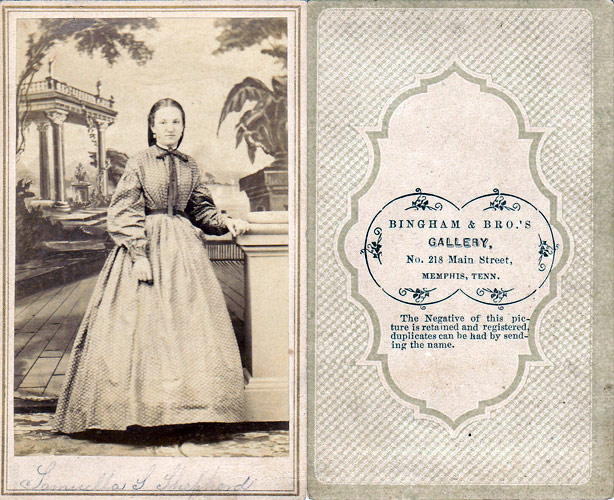 Samuella S Shepherd
BINGHAM & BRO.'S
GALLERY,
No. 218 Main Street,
MEMPHIS, TENN.
The Negative of this pic-
ture is retained and registered,
duplicates can be had by send-
ing the name.